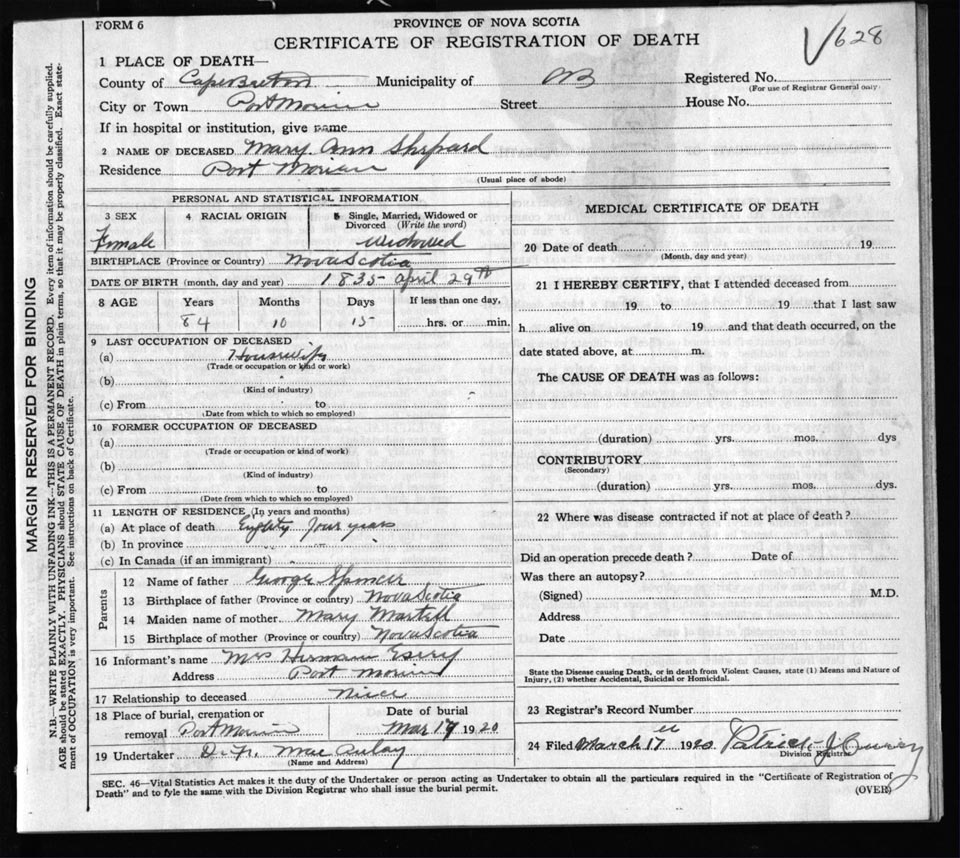 FORM 6
PROVINCE OF NOVA SCOTIA
CERTIFICATE OF REGISTRATION OF DEATH
628
1 PLACE OF DEATH—
County of Cape Breton Municipality of CB Registered No.
(For use of Registrar General only)
City or Town Port Morien Street House No.
If in hospital or institution, give name
2 NAME OF DECEASED Mary Ann Shepard
Residence Port Morien
(Usual place of abode)
PERSONAL AND STATISTICAL INFORMATION
3 SEX 4 RACIAL ORIGIN 5 Single, Married, Widowed or Divorced (Write the word)
Female Widowed
BIRTHPLACE (Province or Country) Nova Scotia
DATE OF BIRTH (month, day and year) 1835 April 29th
8 AGE Years Months Days If less than one day,
84 10 15 hrs. or min.
9 LAST OCCUPATION OF DECEASED
(a) Housewife
(Trade or occupation or kind or work)
(b)
(Kind of industry)
(c) From to
(Date from which to which so employed)
10 FORMER OCCUPATION OF DECEASED
(a)
(Trade or occupation or kind of work)
(b)
(Kind of industry)
(c) From to
(Date from which to which so employed)
11 LENGTH OF RESIDENCE (In years and months)
(a) At place of death Eighty four years
(b) In province
(c) In Canada (if an immigrant)
Parents
12 Name of father George Spencer
13 Birthplace of father (Province or country) Nova Scotia
14 Maiden name of mother Mary Martell
15 Birthplace of mother (Province or country) Nova Scotia
16 Informant's name Mrs Herman
Address Port Morien
17 Relationship to deceased Niece
18 Place of burial, cremation or Date of burial
removal Port Morien Mar 17 1920
19 Undertaker Mac Aulay
(Name and Address)
MEDICAL CERTIFICATE OF DEATH
20 Date of death 19
(Month, day and year)
21 I HEREBY CERTIFY, that I attended deceased from
19 to 19 that I last saw
h alive on 19 and that death occurred, on the
date stated above, at m.
The CAUSE OF DEATH was as follows:
(duration) yrs. mos. dys
CONTRIBUTORY
(Secondary)
(duration) yrs. mos. dys.
22 Where was disease contracted if not at place of death?
Did an operation precede death? Date of
Was there an autopsy?
(Signed) M.D.
Address
Date
State the Disease causing Death, or in death from Violent Causes, state (1) Means and Nature of
Injury, (2) whether Accidental, Suicidal or Homicidal.
23 Registrar's Record Number
24 Filed March 17th 1920 Patrick J
Division Registrar
SEC. 46—Vital Statistics Act makes it the duty of the Undertaker or person acting as Undertaker to obtain all the particulars required in the "Certificate of Registration of
Death" and to fyle the same with the Division Registrar who shall issue the burial permit.
(OVER)
MARGIN RESERVED FOR BINDING
N.B.—WRITE PLAINLY WITH UNFADING INK—THIS IS A PERMANENT RECORD. Every item of information should be carefully supplied.
AGE should be stated EXACTLY. PHYSICIANS should STATE CAUSE OF DEATH in plain terms, so that it may be properly classified. Exact state-
ment of OCCUPATION is very important. See instructions on back of Certificate.